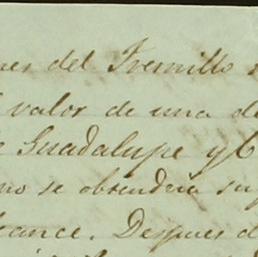 del Tremillo
valor de una de
Guadalupe y
no se obtendria su
rance. Despues d